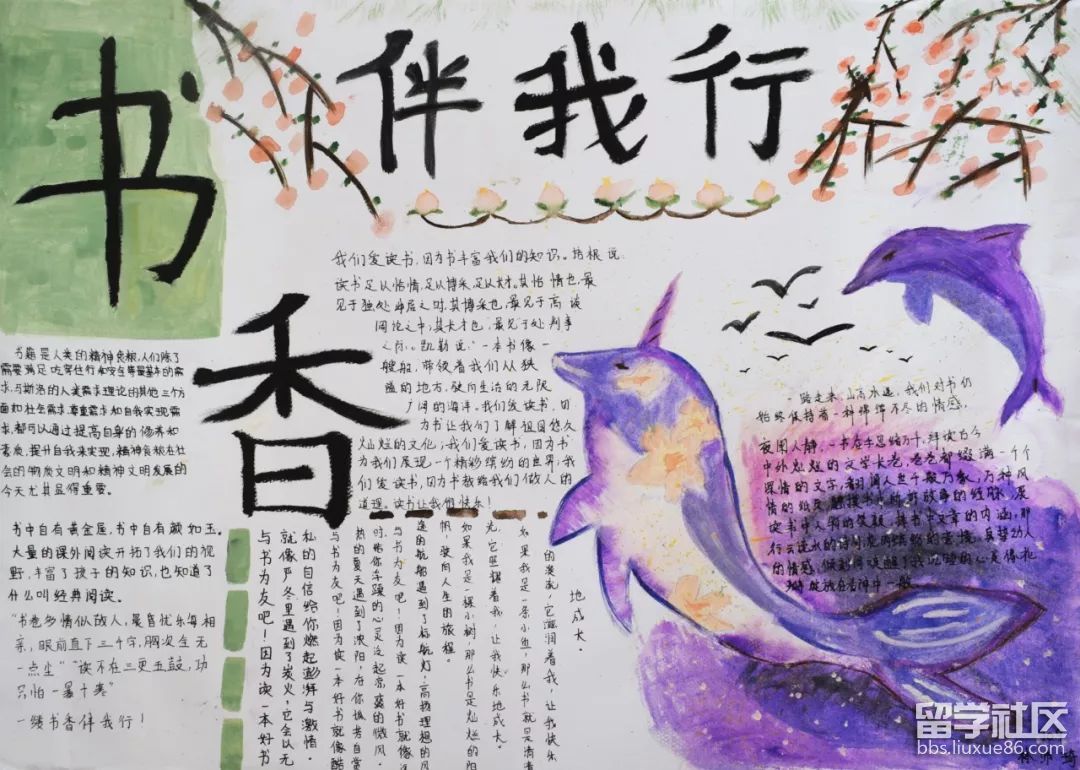 书香
伴我行
我们爱读书,因为书丰富我们的知识。培根说:
读书足以怡情,足以博采,足以长才。其怡情也,最
见于独处幽居之时;其博采也,最见于高谈
阔论之中;其长才也,最见于处判事
之际。凯勒说:“一本书像一
艘船,带领着我们从狭
隘的地方,驶向生活的无限
广阔的海洋。我们爱读书,因
为书让我们了解祖国悠久
灿烂的文化;我们爱读书,因为书
为我们展现一个精彩缤纷的世界;我
们爱读书,因为书教给我们做人的
道理。读书让我们快乐!
书籍是人类的精神食粮,人们除了
需要满足吃穿住行和安全等最基本的需
求,马斯洛的人类需求理论的其他三个方
面如社会需求,尊重需求和自我实现需
求,都可以通过提高自身的修养和
素质,提升自我来实现,精神食粮在社
会的物质文明和精神文明发展的
今天尤其显得重要。
书中自有黄金屋,书中自有颜如玉。
大量的课外阅读开拓了我们的视
野,丰富了孩子的知识,也知道了
什么叫经典阅读。
“书卷多情似故人,晨昏忧乐每相
亲,眼前直下三千字,胸次全无
一点尘”“读不在三更五鼓,功
只怕一曝十寒”
一缕书香伴我行!
一路走来,山高水远,我们对书仍
始终保持着一种绵绵不尽的情感。
夜阑人静,一书在手思绪万千,拜读古今
中外灿烂的文学长卷,卷卷都缀满一个个
深情的文字,翻阅人世千般万象,万种风
情的纸页,触摸书中的故事的经脉,展
读书中人物的笑靥,
行云流水的诗词流丽缤纷的意境,真挚动人
的情感,
瓣绽放在舌洲中一般
地成大。
的
,它滋润着我,让我快乐
如果我是一条小鱼,那么书就是清清
光,它照耀着我,让我快乐地成大。
如果我是一棵小树那么书是灿烂的阳
帆,驶向人生的旅程。
途的航船遇到了标航灯,高扬理想的风
与书为友吧!因为读一本好书就像迷
时,给你浮躁的心灵泛起凉爽的微风。
热的夏天遇到了浓阴,在你
与书为友吧!因为读一本好书就像酷
私的自信给你燃起澎湃与激情。
就像严冬里遇到了炭火,它会以无
与书为友吧!因为读一本好书
林
琦
留学社区
bbs.liuxue86.com